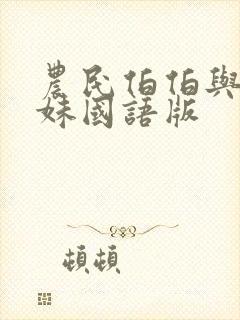 農民伯伯與
妹國語版
頓頓